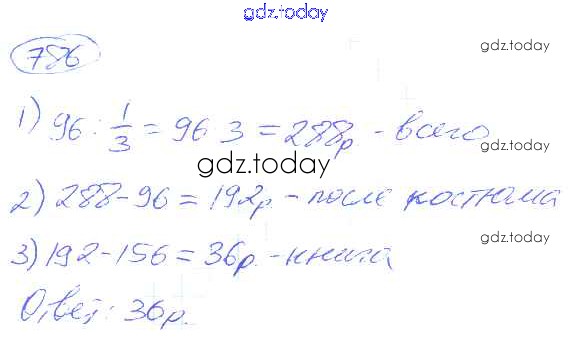 gdz.today
786
gdz.today
1) 96 : 1/3 = 96 · 3 = 288р - всего
gdz.today
gdz.today
2) 288 - 96 = 192р. - после костюма
gdz.today
3) 192 - 156 = 36р. - книга
Ответ: 36р.